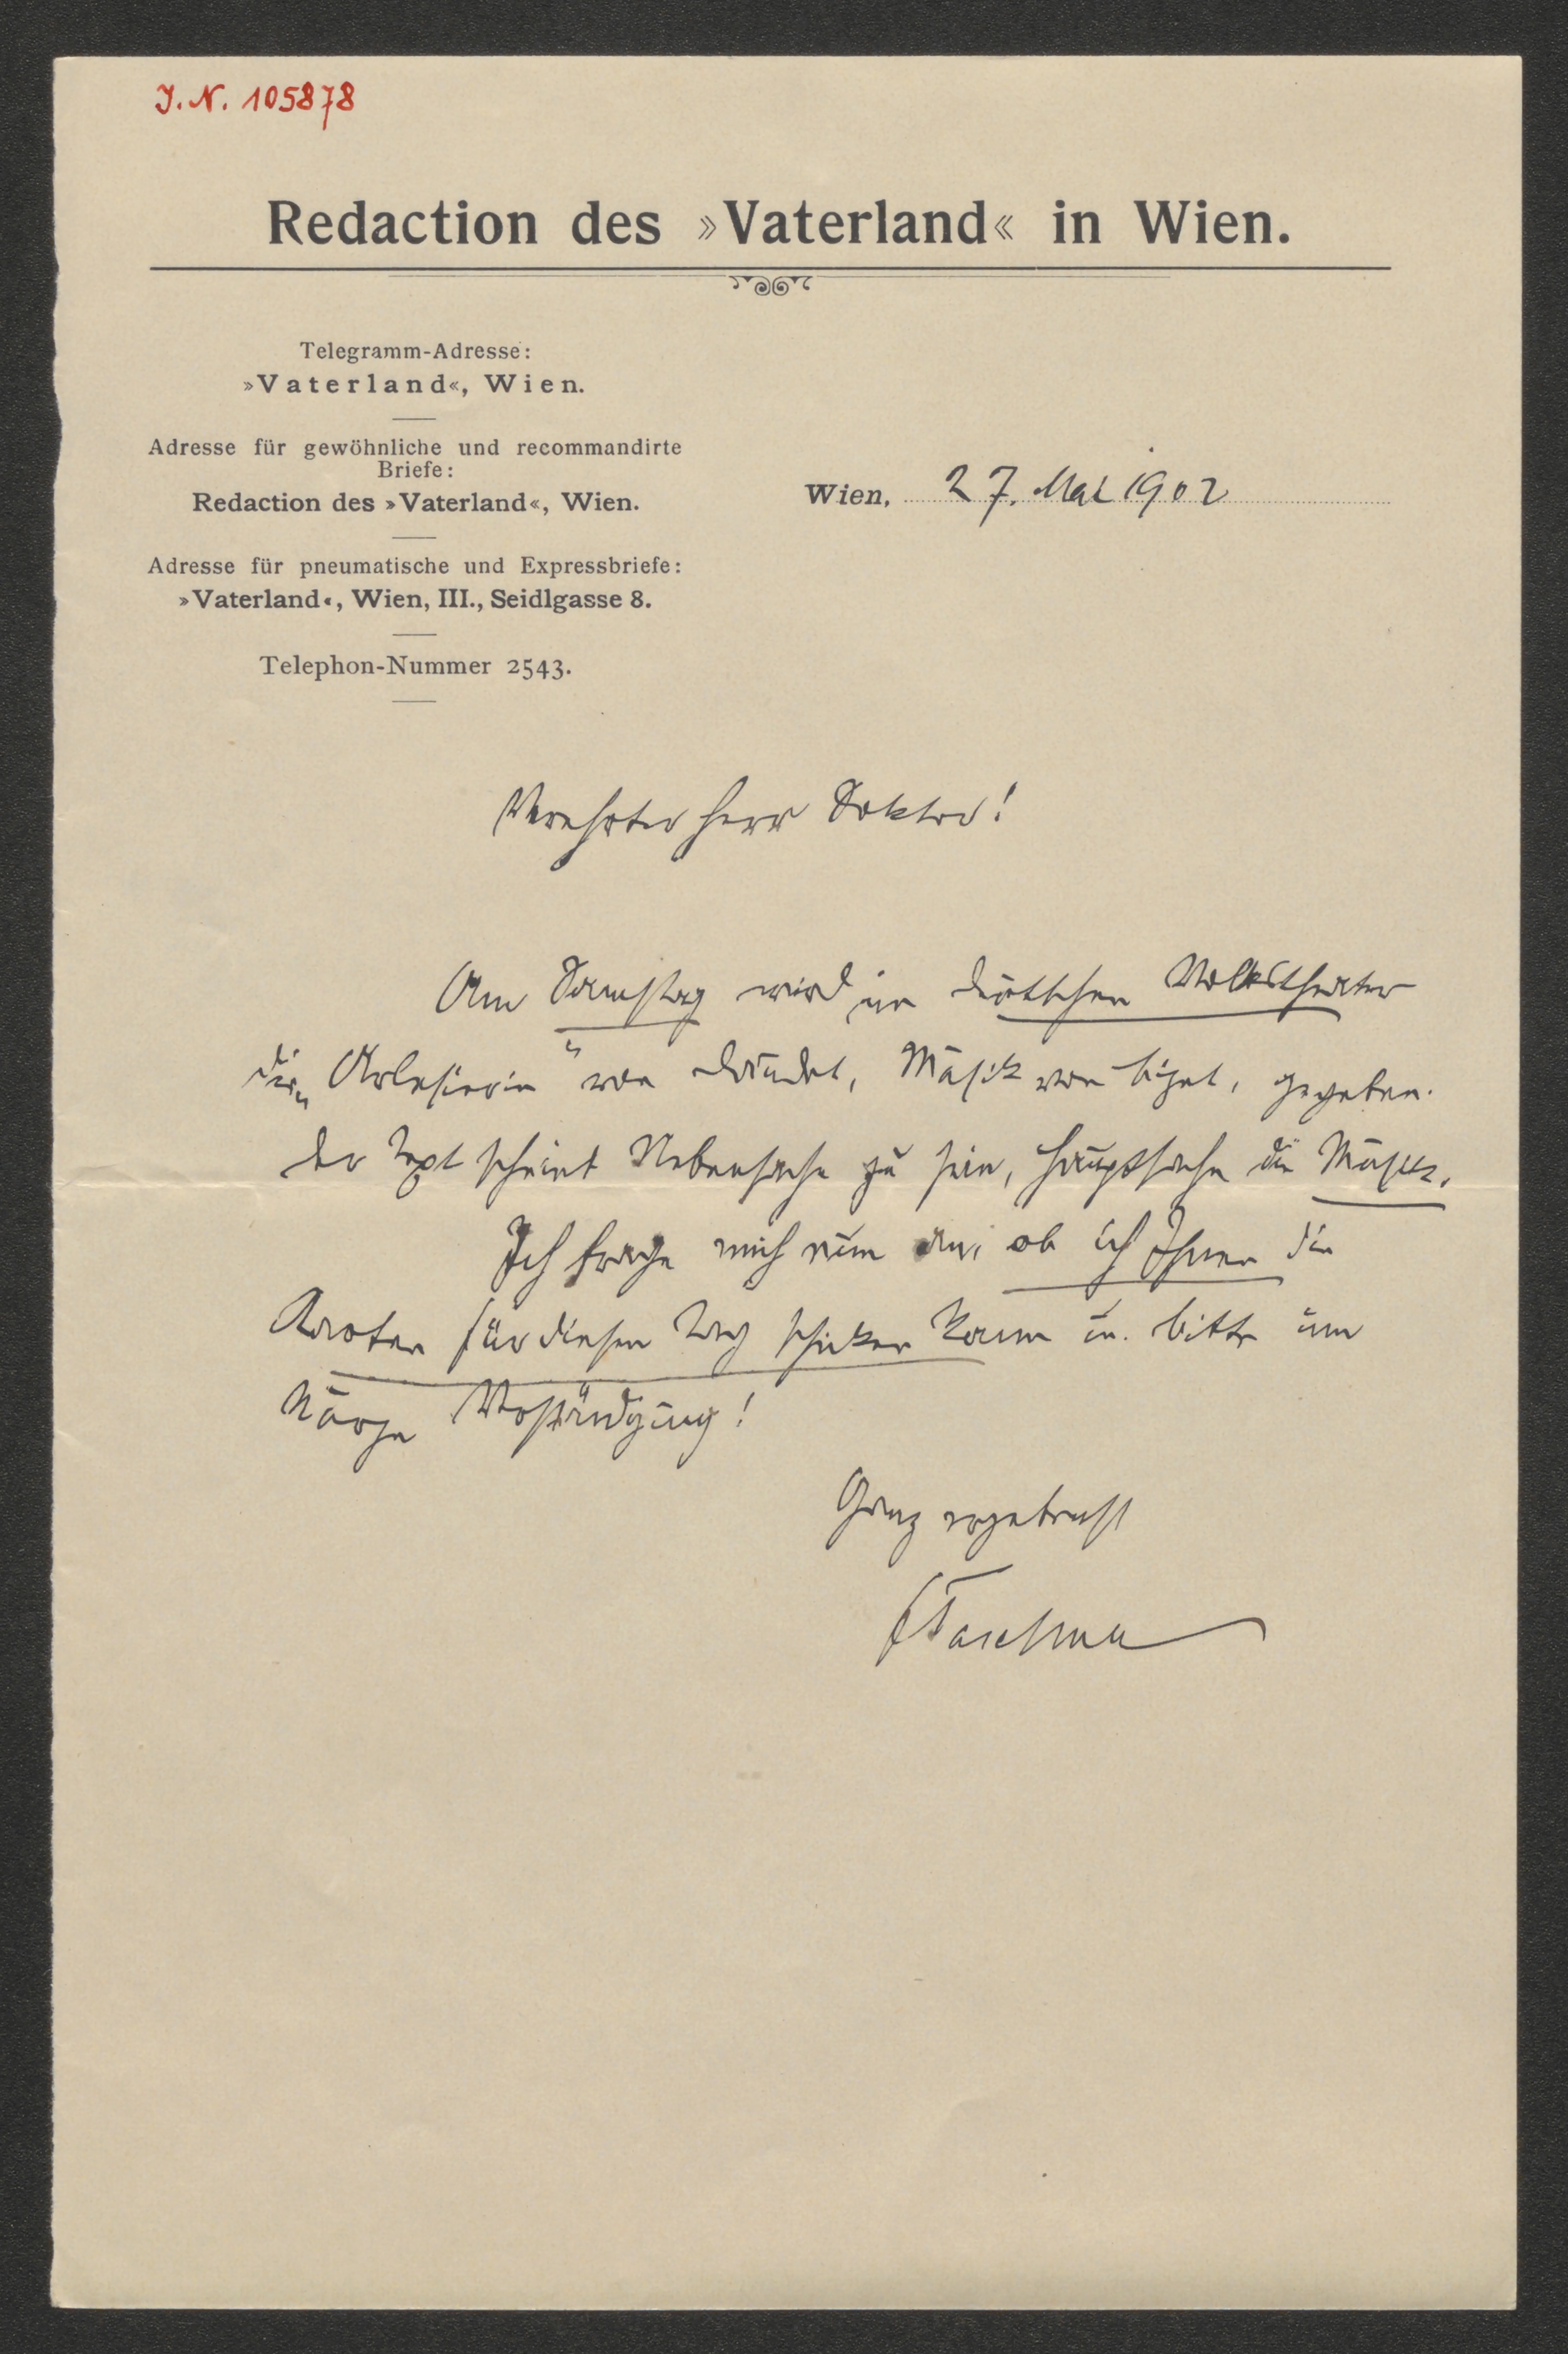 J. N. 105878
Redaction des »Vaterland« in Wien.
Telegramm-Adresse:
»Vaterland«, Wien.
Adresse für gewöhnliche und recommandirte
Briefe:
Redaction des »Vaterland«, Wien.
Adresse für pneumatische und Expressbriefe:
»Vaterland«, Wien, III., Seidlgasse 8.
Telephon-Nummer 2543.
Wien, 27. Mai 1902
Verehrter Herr Doktor!
Am Samstag wird im deutschen Volkstheater
die „Arlesierin“ von Daudet, Musik von Bizet, gegeben.
Der Text scheint Nebensache zu sein, Hauptsache die Musik.
Ich frage mich nun an, ob ich Ihnen die
Karten für diesen Tag schicken kann u. bitte um
kurze Verständigung!
Ganz ergebenst